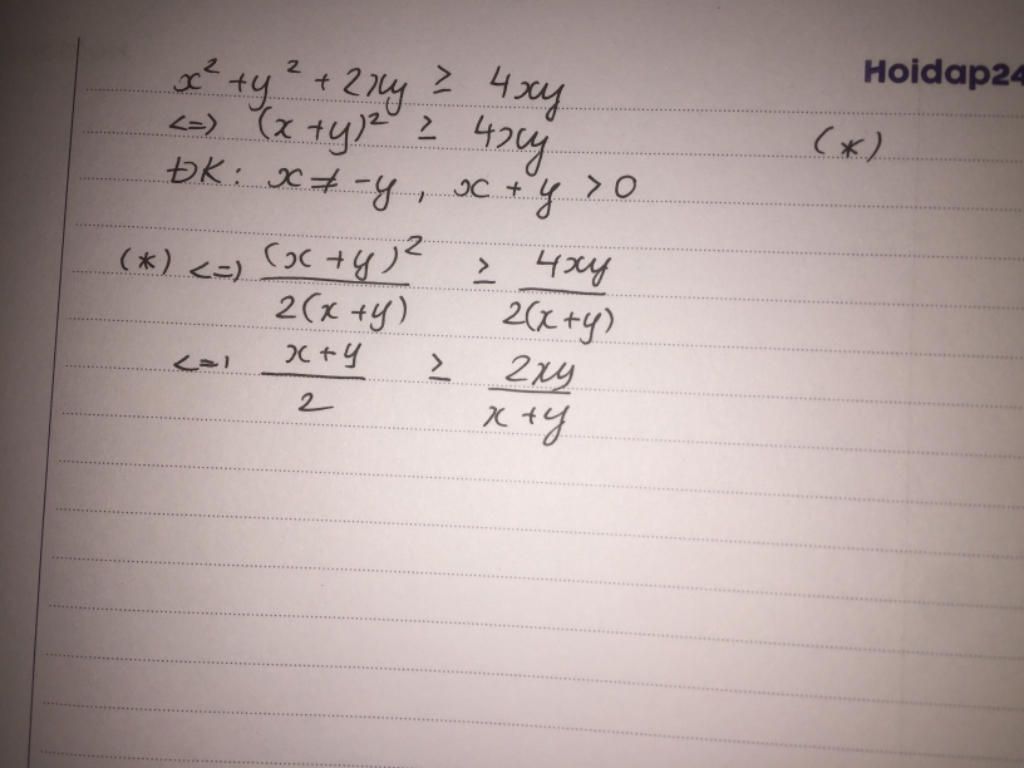 Hoidap24
x² + y² + 2xy ≥ 4xy
<=> (x + y)² ≥ 4xy (*)
ĐK: x ≠ -y, x + y > 0
(*) <=> (x + y)² / 2(x + y) ≥ 4xy / 2(x + y)
<=> x + y / 2 ≥ 2xy / x + y